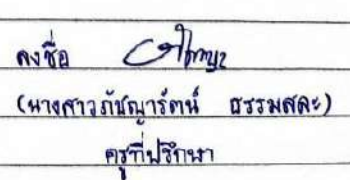 ลงชื่อ
(นางสาวภัชญารัตน์ ธรรมสละ)
ครูที่ปรึกษา